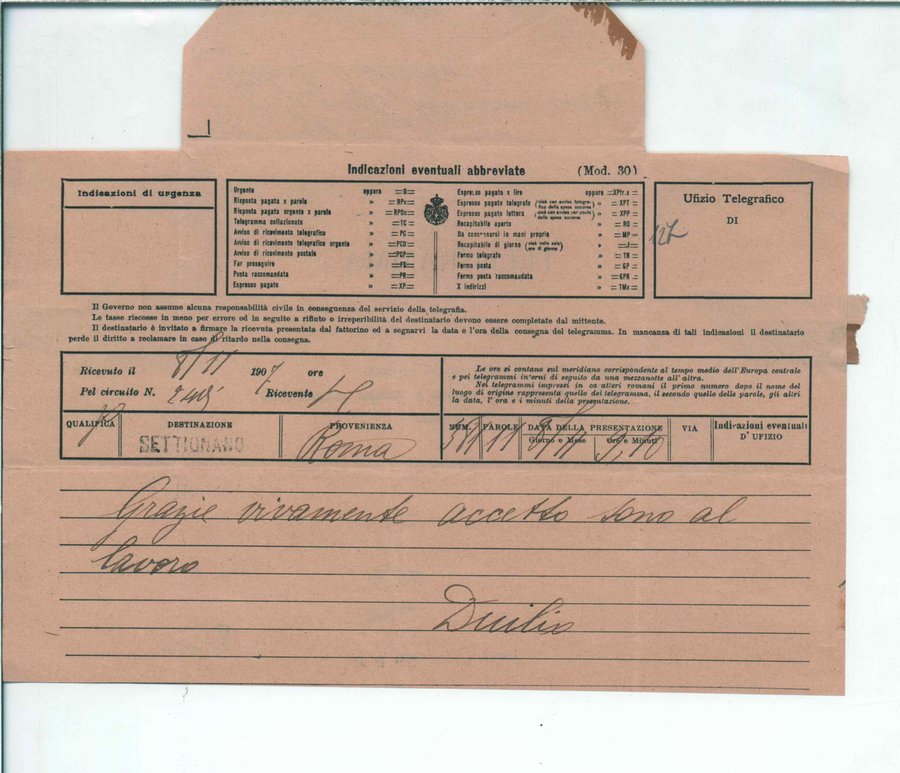 Indicazioni eventuali abbreviate (Mod. 30)
Indicazioni di urgenza
Urgente oppure =U=
Risposta pagata x parole » =RPx=
Risposta pagata urgente x parole » =RPDx=
Telegramma collazionato » =TC=
Avviso di ricevimento telegrafico » =PC=
Avviso di ricevimento telegrafico urgente » =PCD=
Avviso di ricevimento postale » =PCP=
Far proseguire » =FS=
Posta raccomandata » =PR=
Espresso pagato » =XP=
Espresso pagato x lire oppure =XPfr.x=
Espresso pagato telegrafo » =XPT=
Espresso pagato lettera » =XPP=
Recapitabile aperto » =RO=
Da consegnarsi in mani proprie » =MP=
Recapitabile di giorno (cioè nelle sole ore di giorno) » =J=
Fermo telegrafo » =TR=
Fermo posta » =GP=
Fermo posta raccomandata » =GPR=
X indirizzi » =TMx=
Ufizio Telegrafico
DI
Il Governo non assume alcuna responsabilità civile in conseguenza del servizio della telegrafia.
Le tasse riscosse in meno per errore od in seguito a rifiuto o irreperibilità del destinatario devono essere completate dal mittente.
Il destinatario è invitato a firmare la ricevuta presentata dal fattorino ed a segnarvi la data e l'ora della consegna del telegramma. In mancanza di tali indicazioni il destinatario
perde il diritto a reclamare in caso di ritardo nella consegna.
Ricevuto il 8/11 1907 ore
Pel circuito N. Ricevente
Le ore si contano sul meridiano corrispondente al tempo medio dell'Europa centrale
e pei telegrammi interni di seguito da una mezzanotte all'altra.
Nei telegrammi impressi in caratteri romani il primo numero dopo il nome del
luogo di origine rappresenta quello del telegramma, il secondo quello delle parole, gli altri
la data, l'ora e i minuti della presentazione.
QUALIFICA DESTINAZIONE PROVENIENZA NUM. PAROLE DATA DELLA PRESENTAZIONE VIA Indicazioni eventuali
Giorno e Mese Ore e Minuti D'UFIZIO
SETTIGNANO Roma 11 8/11
Grazie vivamente accetto sono al
lavoro
Duilio